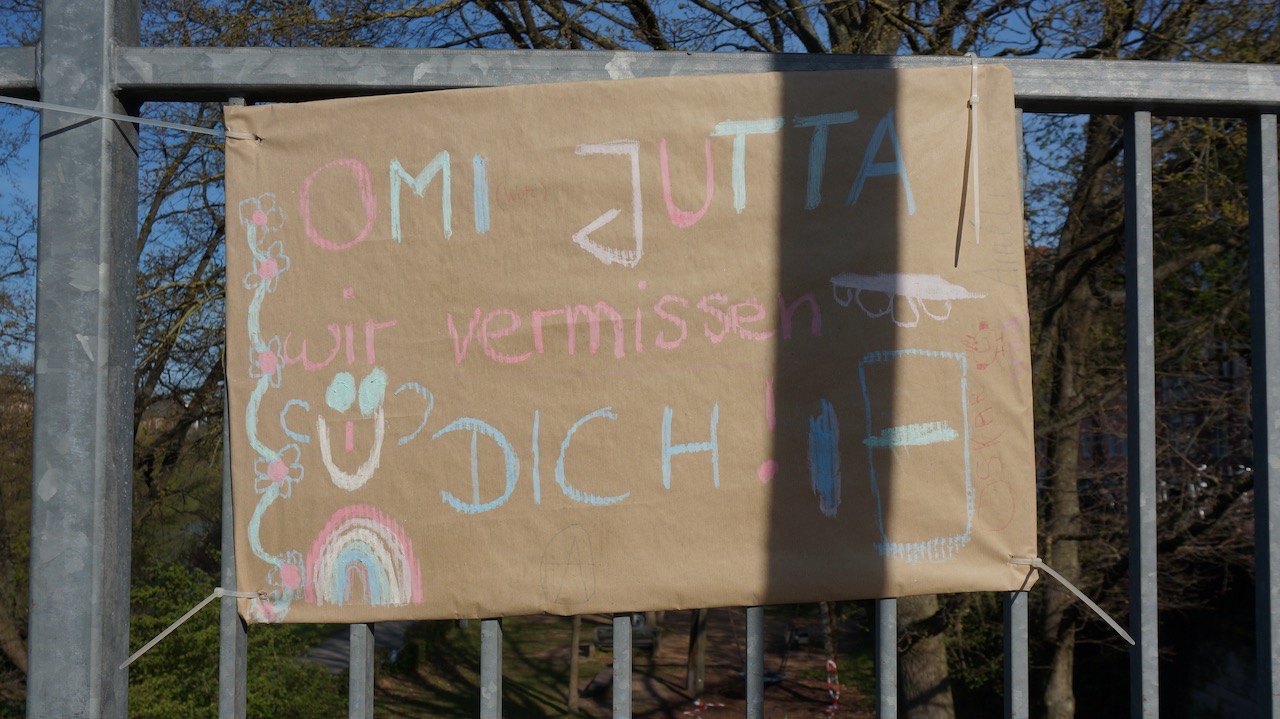 OMI JUTTA
wir vermissen
DICH!
OSKAR